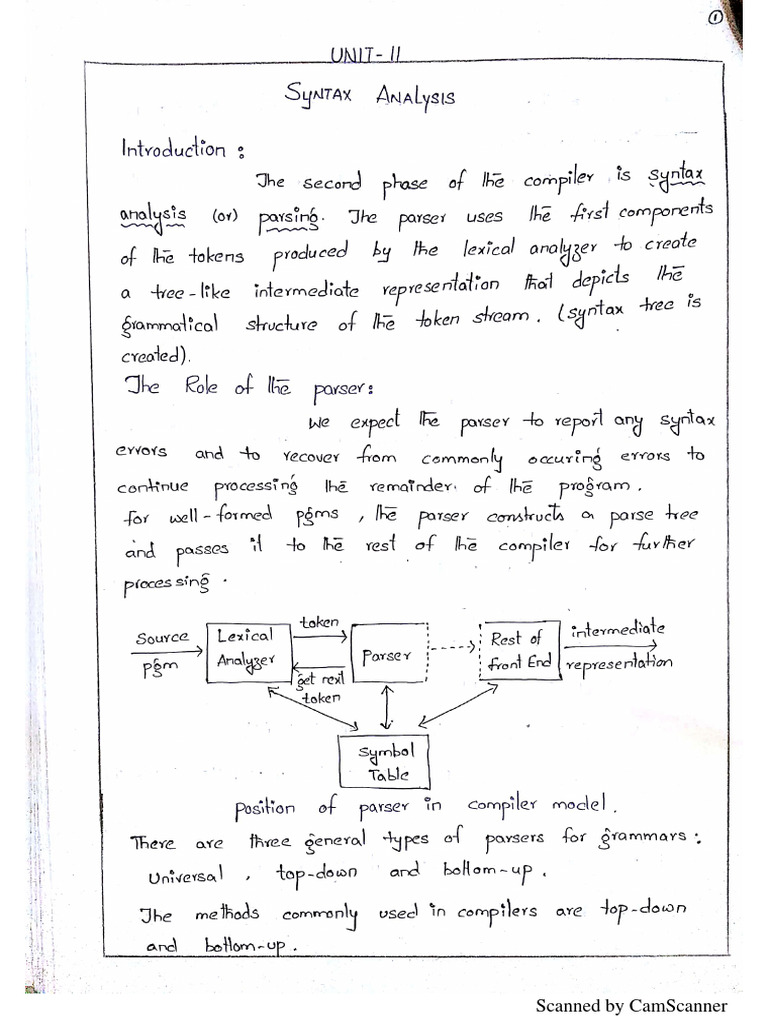 1
UNIT-II
SYNTAX ANALYSIS
Introduction :
The second phase of the compiler is syntax
analysis (or) parsing. The parser uses the first components
of the tokens produced by the lexical analyzer to create
a tree-like intermediate representation that depicts the
grammatical structure of the token stream. (syntax tree is
created).
The Role of the parser:
We expect the parser to report any syntax
errors and to recover from commonly occuring errors to
continue processing the remainder. of the program.
for well-formed pgms, the parser constructs a parse tree
and passes it to the rest of the compiler for further
processing.
source
pgm
Lexical
Analyzer
token
get next
token
Parser
Rest of
front End
intermediate
representation
symbol
Table
position of parser in compiler model.
There are three general types of parsers for grammars:
Universal, top-down and bottom-up.
The methods commonly used in compilers are top-down
and bottom-up.
Scanned by CamScanner